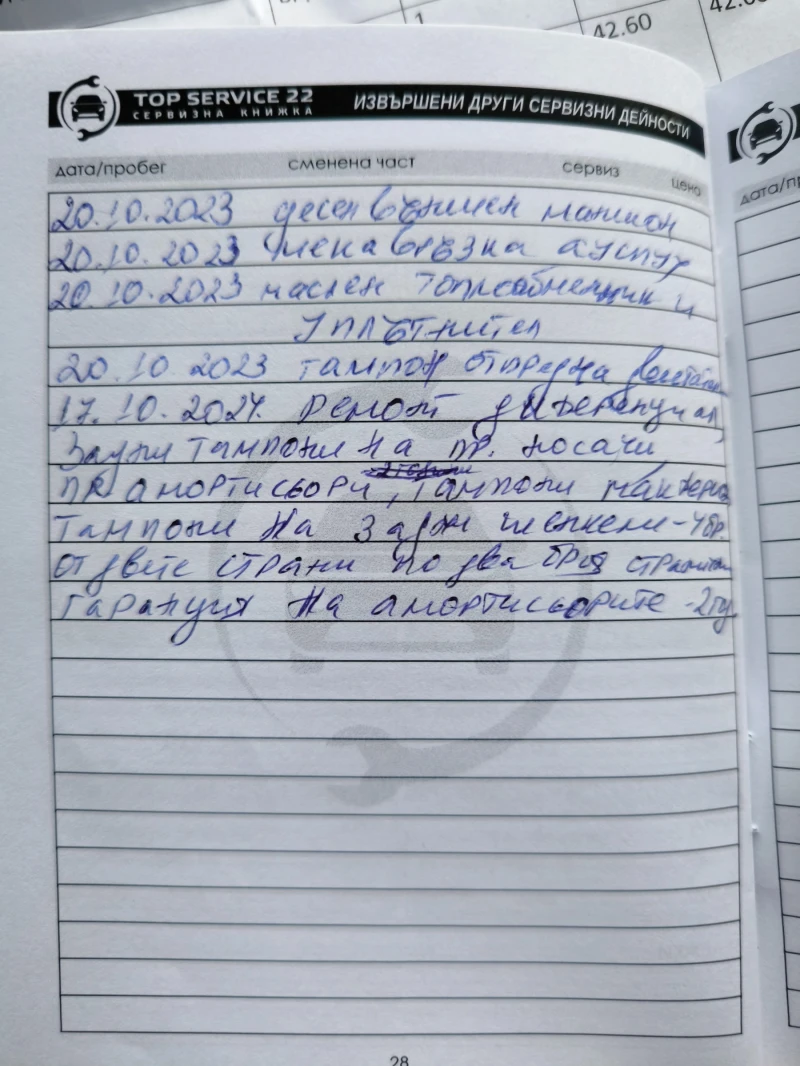 42.60
1
TOP SERVICE 22
СЕРВИЗНА КНИЖКА
ИЗВЪРШЕНИ ДРУГИ СЕРВИЗНИ ДЕЙНОСТИ
дата/пробег сменена част сервиз цена
20.10.2023 десен външен маншон
20.10.2023 Мека връзка ауспух
20.10.2023 маслен топлообменник и
Уплътнител
20.10.2023 тампон отпредна
17.10.2024. Ремонт диференциал,
Задни тампони на пр. носачи
пр. амортисьори, тампони
Тампони на задни -4бр.
от двете страни по два броя
Гаранция на амортисьорите -2г
28